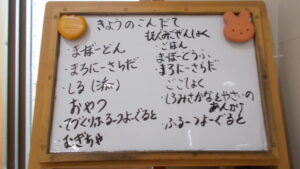 きょうのこんだて
・まーぼーどん
・まろにーさらだ
・しる(添)
おやつ
・てづくりふるーつよーぐると
・むぎちゃ
・ごはん
・まーぼーどうふ
・まろにーさらだ
ごごしょく
・しろみざかなとやさいの
あんかけ
・ふるーつよーぐると